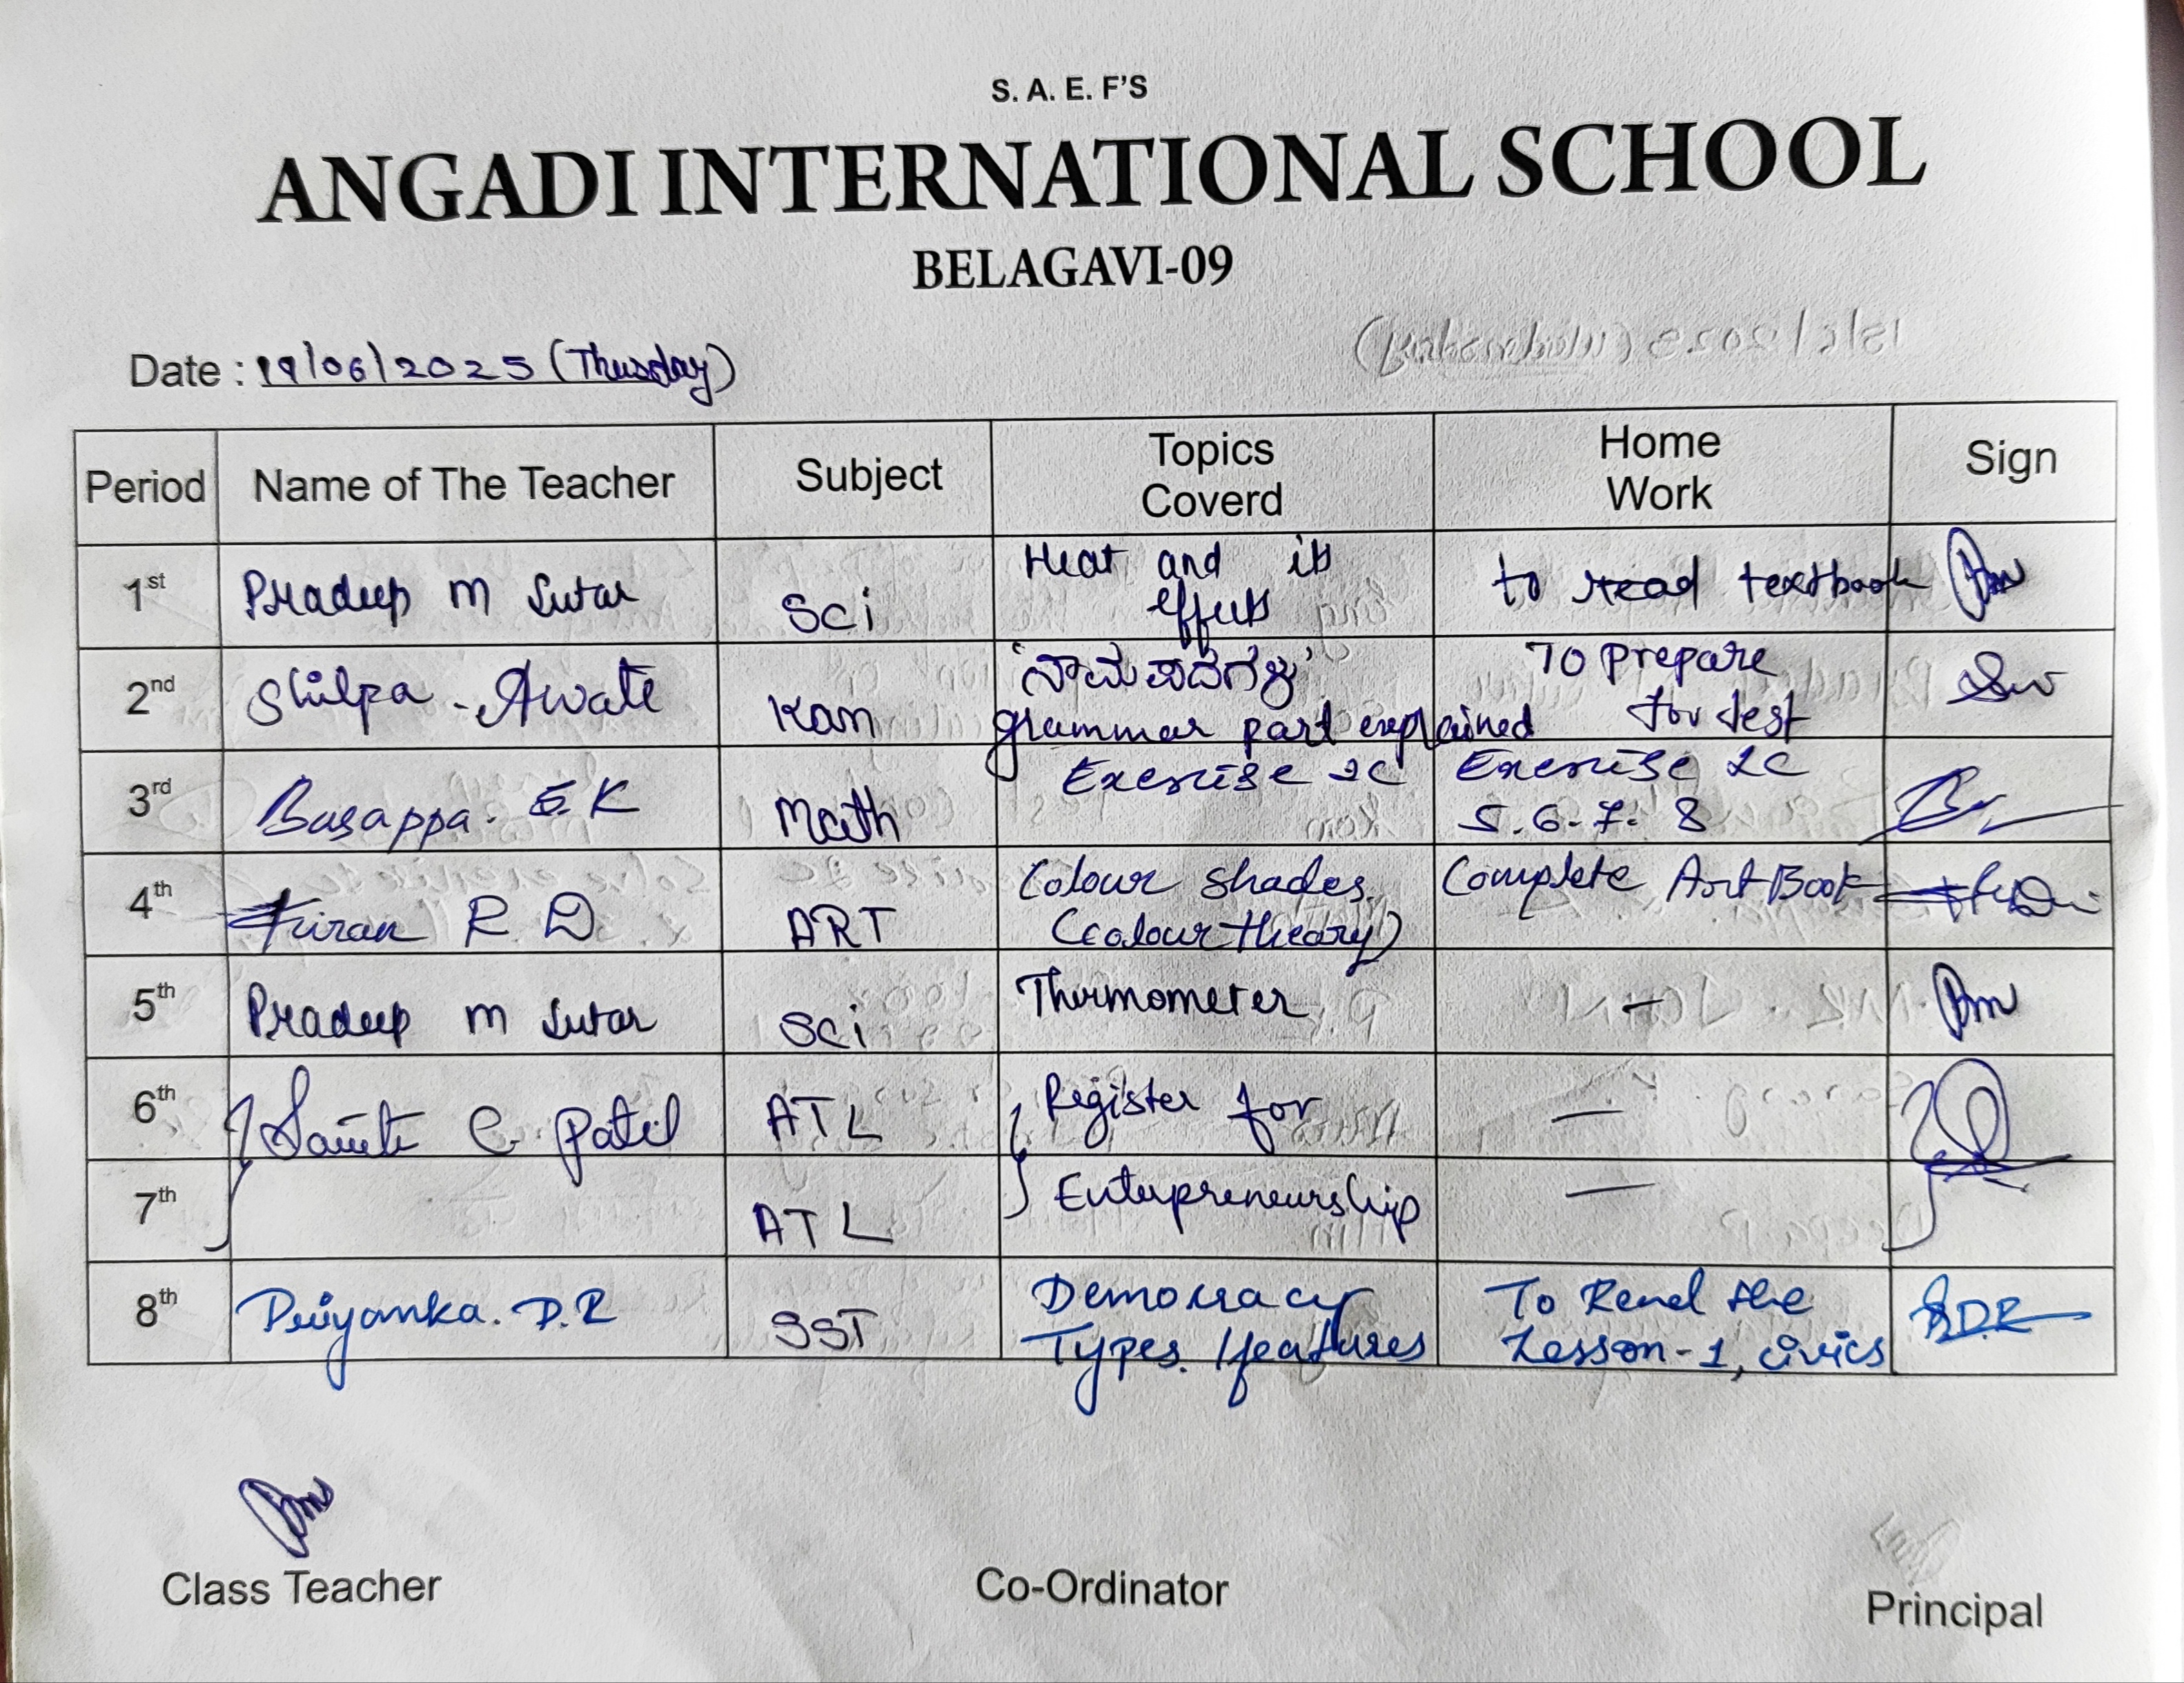 S. A. E. F'S
ANGADI INTERNATIONAL SCHOOL
BELAGAVI-09
Date : 19/06/2025 (Thusday)
Period Name of The Teacher Subject Topics Coverd Home Work Sign
1st Pradeep m Sutar Sci Heat and its effects to read textbook
2nd Shilpa - Awate Kan 'ನಾಮಪದಗಳು' grammar part explained To prepare for test
3rd Basappa. K Math Exercise 2C Exercise 2C 5. 6. 7. 8
4th Kiran R. D ART Colour shades. (colour theory) Complete Art Book
5th Pradeep m Sutar Sci Thermometer -
6th C. Patil ATL Register for —
7th ATL Enterpreneurship —
8th Priyanka. D.R SST Democracy Types, features To Read the Lesson-1, civics
Class Teacher Co-Ordinator Principal